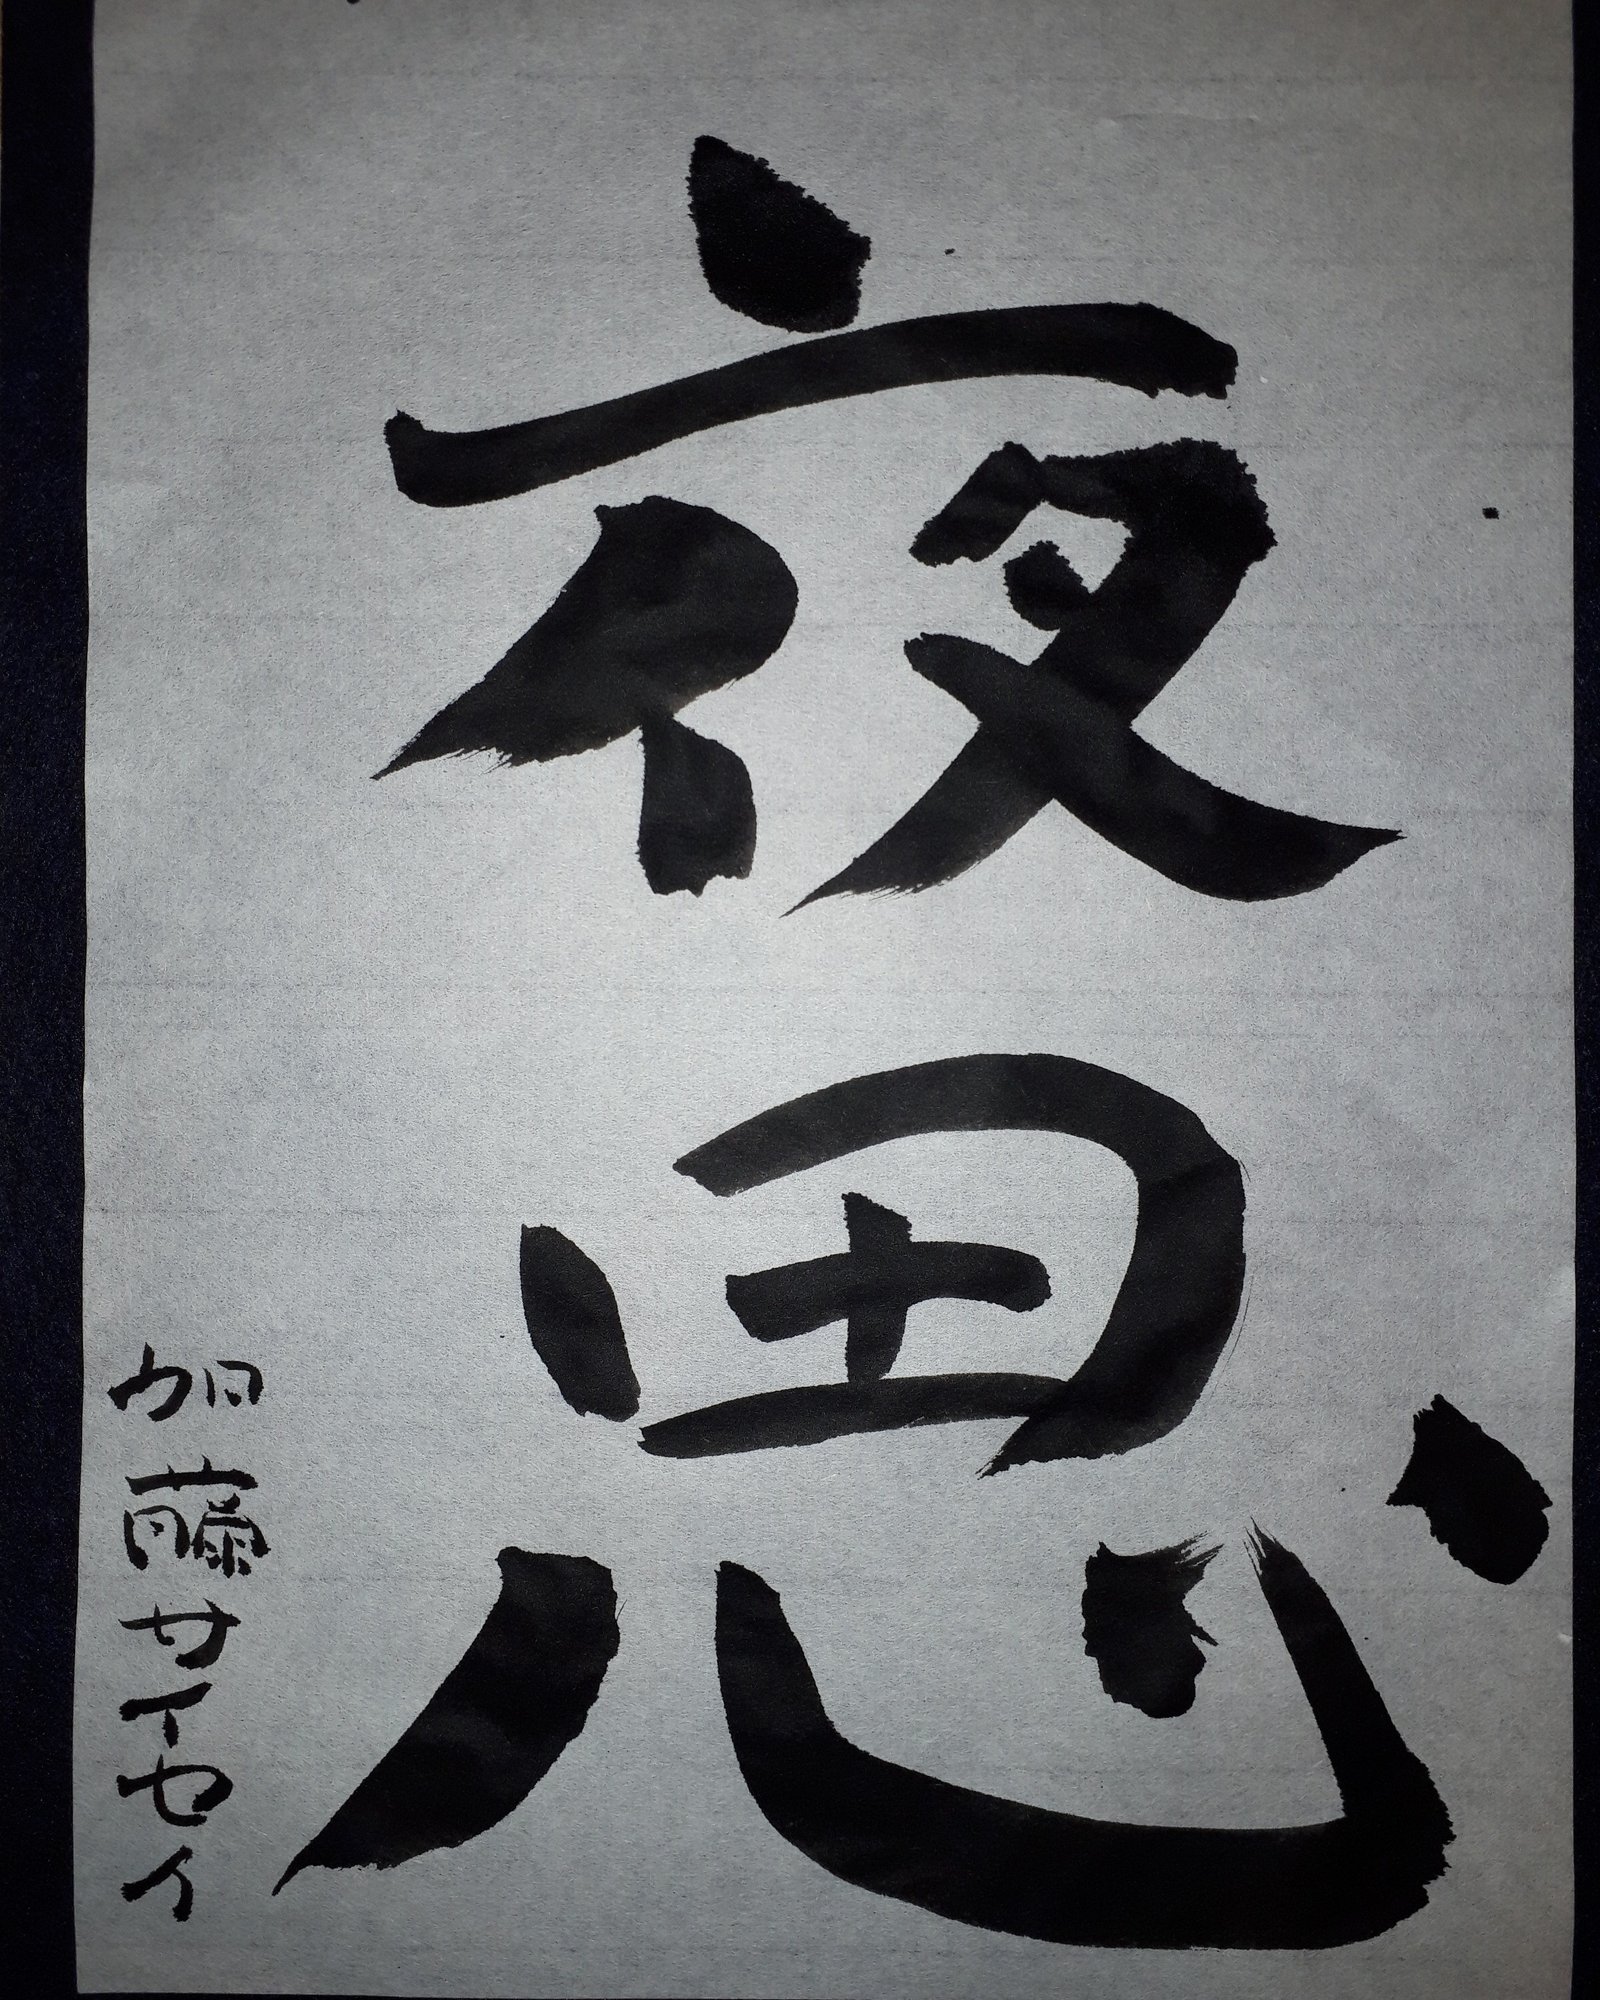 夜思
加藤サイセイ